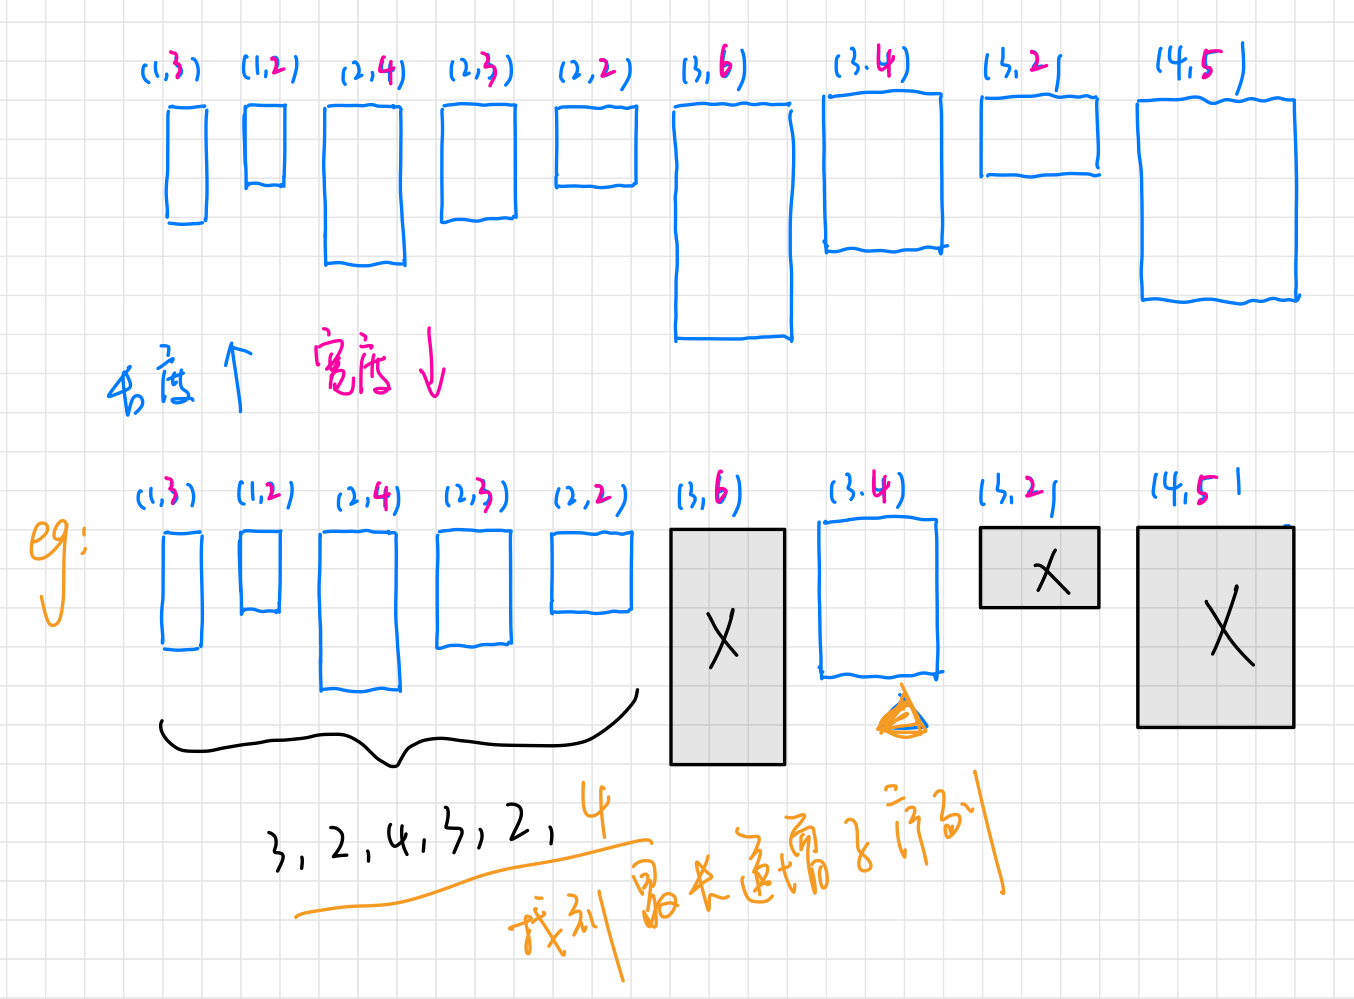 (1,3) (1,2) (2,4) (2,3) (2,2) (3,6) (3.4) (3,2) (4,5)
长度 ↑ 宽度 ↓
(1,3) (1,2) (2,4) (2,3) (2,2) (3,6) (3.4) (3,2) (4,5)
eg:
X X X
3, 2, 4, 3, 2, 4
找到最长递增子序列